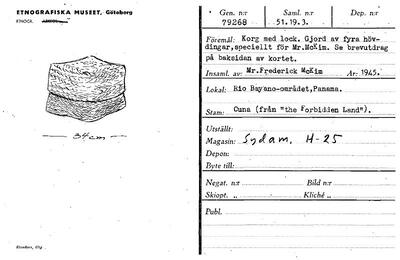 ETNOGRAFISKA MUSEET, Göteborg
ETNOGR.
34 cm
Elanders, Gbg
Gen. n:r
79268
Saml. n:r
51.19.3.
Dep. n:r
Föremål: Korg med lock. Gjord av fyra höv-
dingar, speciellt för Mr.McKim. Se brevutdrag
på baksidan av kortet.
Insaml. av: Mr.Frederick McKim År: 1945.
Lokal: Rio Bayano-området, Panama.
Stam: Cuna (från "the Forbidden Land").
Utställt:
Magasin: Sydam. H-25
Depon:
Byte till:
Negat. n:r Bild n:r
Skiopt. „ Kliché „
Publ.